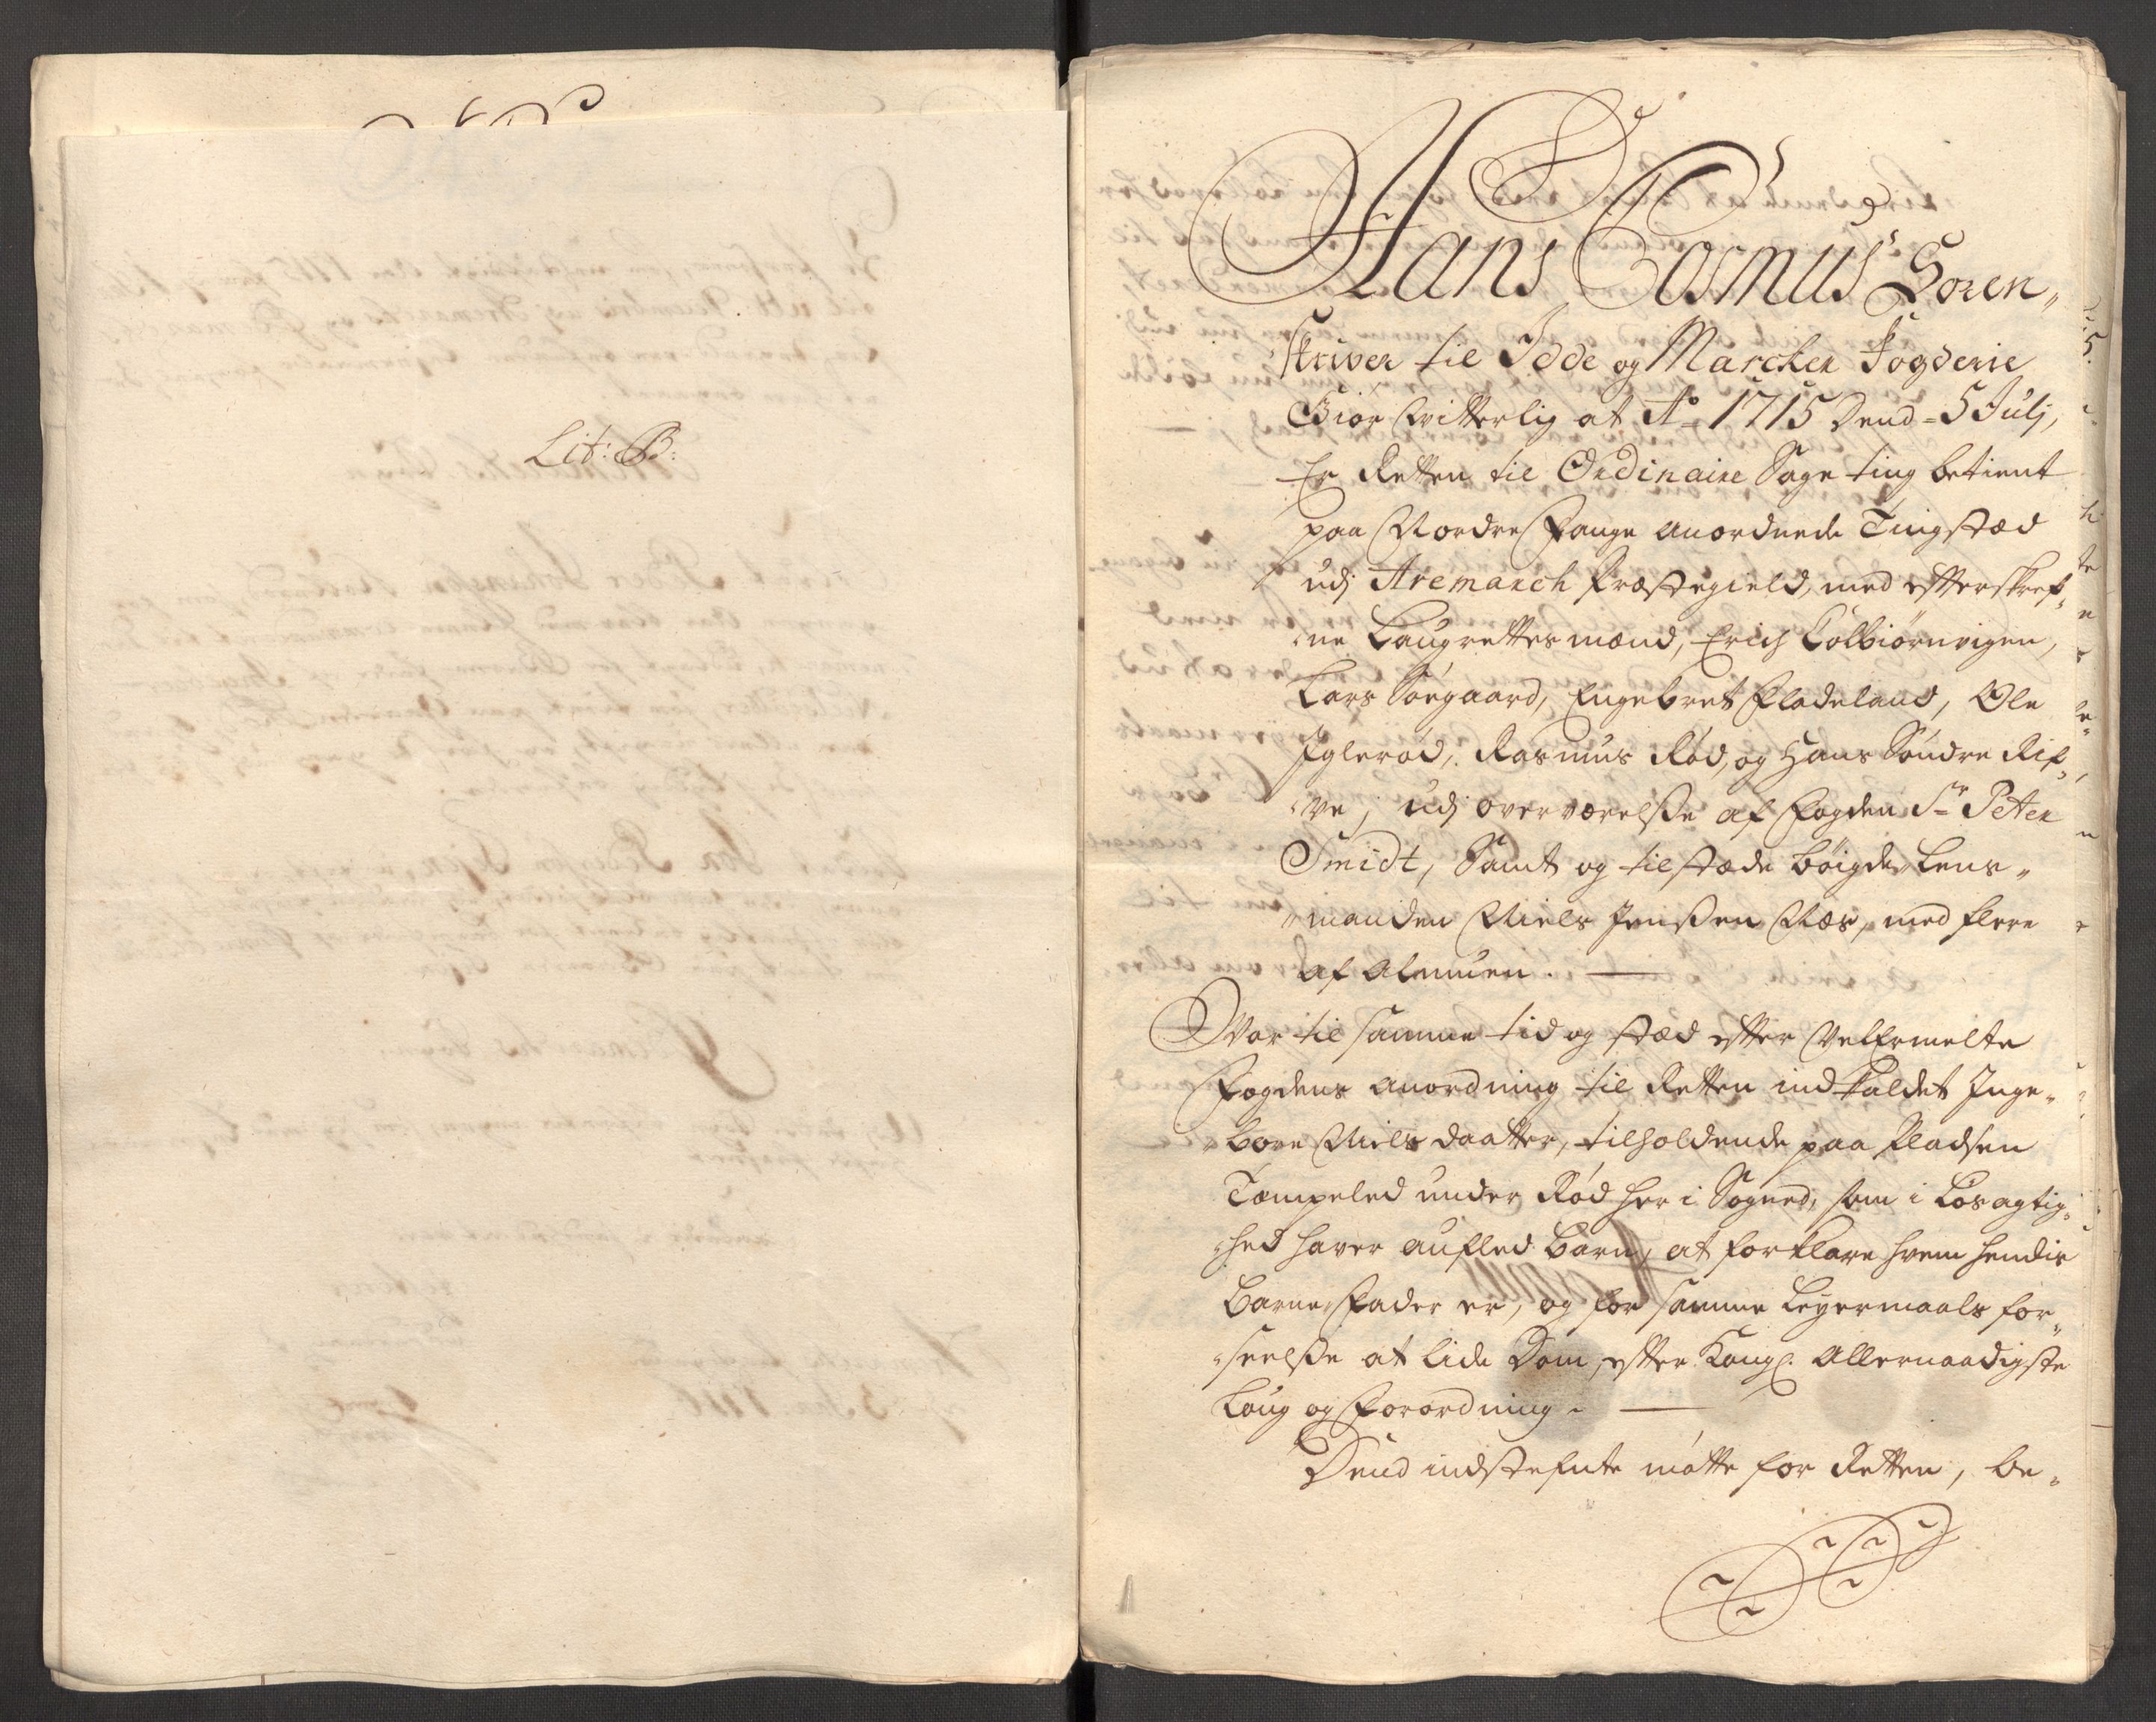 Lit: B:
Hans Cosmus Soren,,
skriver til Idde og Marcker Fogderie
Giør Witterlig at A° 1715 Dend 5 Julj,
Er Retten til Ordinaire Sage ting betient
paa Nordre Fange anordnede Tingstæd
udj Aremarch Præstegield, med efterskref,,
,,ne Laugrettesmænd, Erich Tolbiørnvigen,
Lars Søegaard, Engebret Fladeland, Ole
Iglerød, Rasmus Rød, og Hans Søndre Rif,,
,,ve, udj overværelsse af Fogden Sr Peter
Smidt, Samt og tilstæde bøigde Lens,,
,,manden Niels Jenssen Næs, med flere
af Almuen.
War til samme tid og stæd efter Velermelte
Fogdens anordning til Retten indkaldet Inge,,
,,bore Niels daatter, tilholdende paa Pladsen
Tæmpeled under Rød her i Sogned, som i Løsagtig,,
,,hed haver aufled Barn, at forklare hvem hendis
Barne Fader er, og for samme Leyermaals for,,
,,seelsse at lide Dom, efter Kongl: Allernaadigste
Loug og Forordning.
Dend indstefnte møtte for Retten, be,,